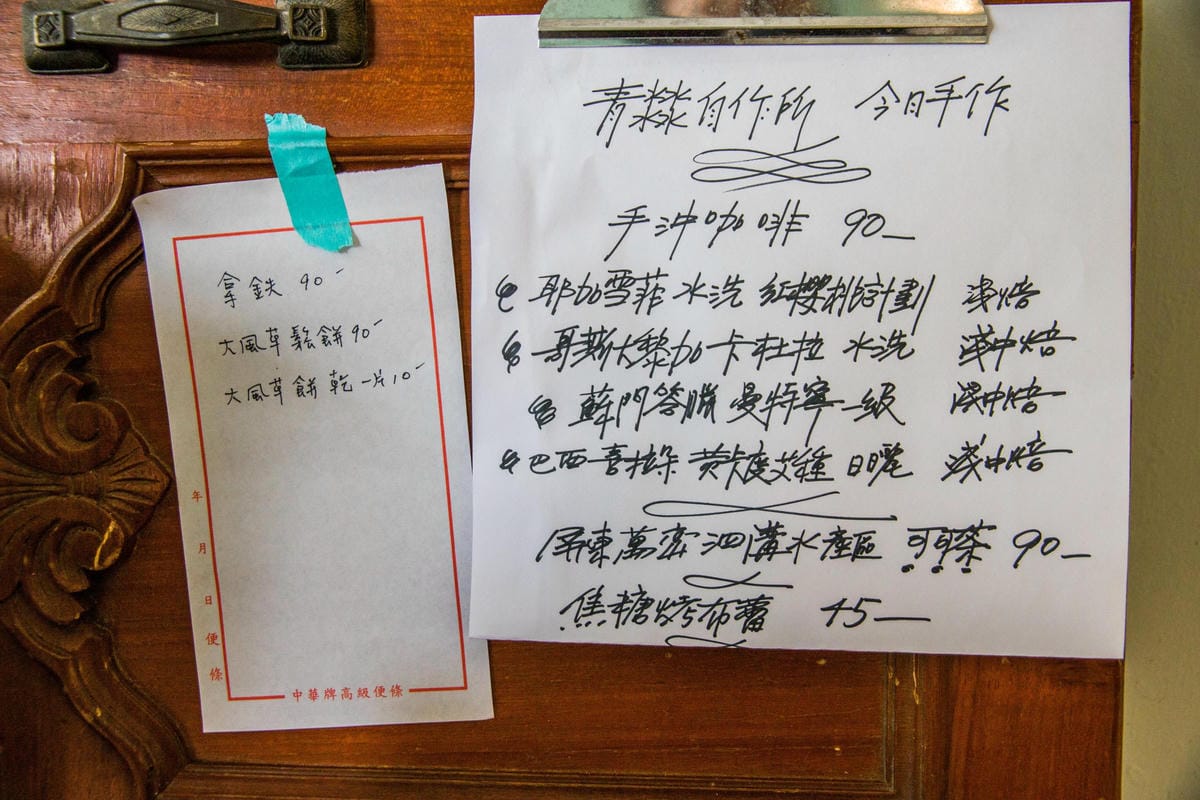 拿鉄 90-
大風草鬆餅 90-
大風草餅乾 一片 10-
年
月
日
便
條
中華牌高級便條
青 自作所 今日手作
手沖咖啡 90-
耶加雪菲 水洗 紅櫻桃計劃 淺焙
哥斯大黎加 卡杜拉 水洗 淺中焙
蘇門答臘 曼特寧 一級 深中焙
巴西喜拉朵 黃卡度艾種 日曬 淺中焙
屏東萬巒泗溝水產區 可可茶 90-
焦糖烤布蕾 45-